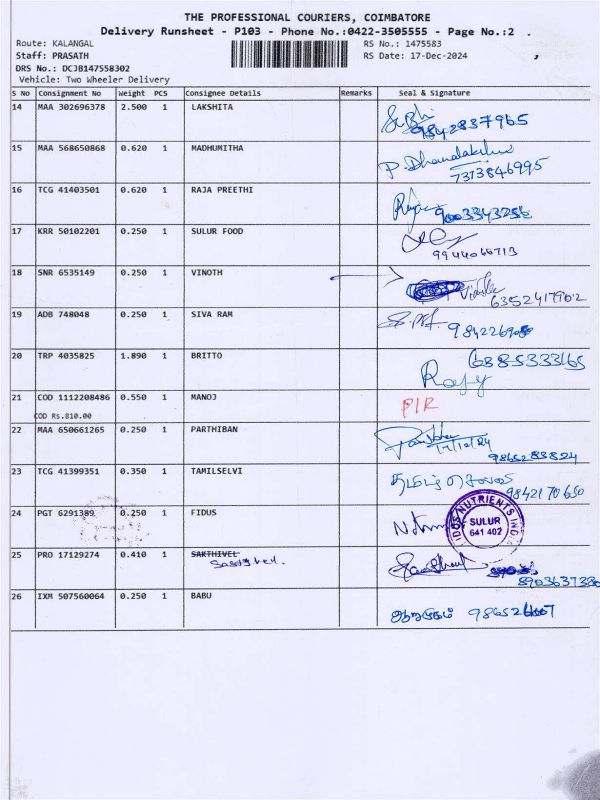 THE PROFESSIONAL COURIERS, COIMBATORE
Delivery Runsheet - P103 - Phone No.:0422-3505555 - Page No.:2
Route: KALANGAL RS No.: 1475583
Staff: PRASATH RS Date: 17-Dec-2024
DRS No.: DCJB147558302
Vehicle: Two Wheeler Delivery
S No Consignment No Weight PCS Consignee Details Remarks Seal & Signature
14 MAA 302696378 2.500 1 LAKSHITA
9842837965
15 MAA 568650868 0.620 1 MADHUMITHA P. Dhanalakshmi
7373846995
16 TCG 41403501 0.620 1 RAJA PREETHI
9003343256
17 KRR 50102201 0.250 1 SULUR FOOD
9944066713
18 SNR 6535149 0.250 1 VINOTH
6352417902
19 ADB 748048 0.250 1 SIVA RAM
20 TRP 4035825 1.890 1 BRITTO 6385333165
21 COD 1112208486 0.550 1 MANOJ P/R
COD Rs.810.00
22 MAA 650661265 0.250 1 PARTHIBAN
17/12/24
9865288824
23 TCG 41399351 0.350 1 TAMILSELVI தமிழ் செல்வி
9842170650
24 PGT 6291389 0.250 1 FIDUS
NUTRIENTS
SULUR
641 402
25 PRO 17129274 0.410 1 SAKTHIVEL
8903637330
26 IXM 507560064 0.250 1 BABU